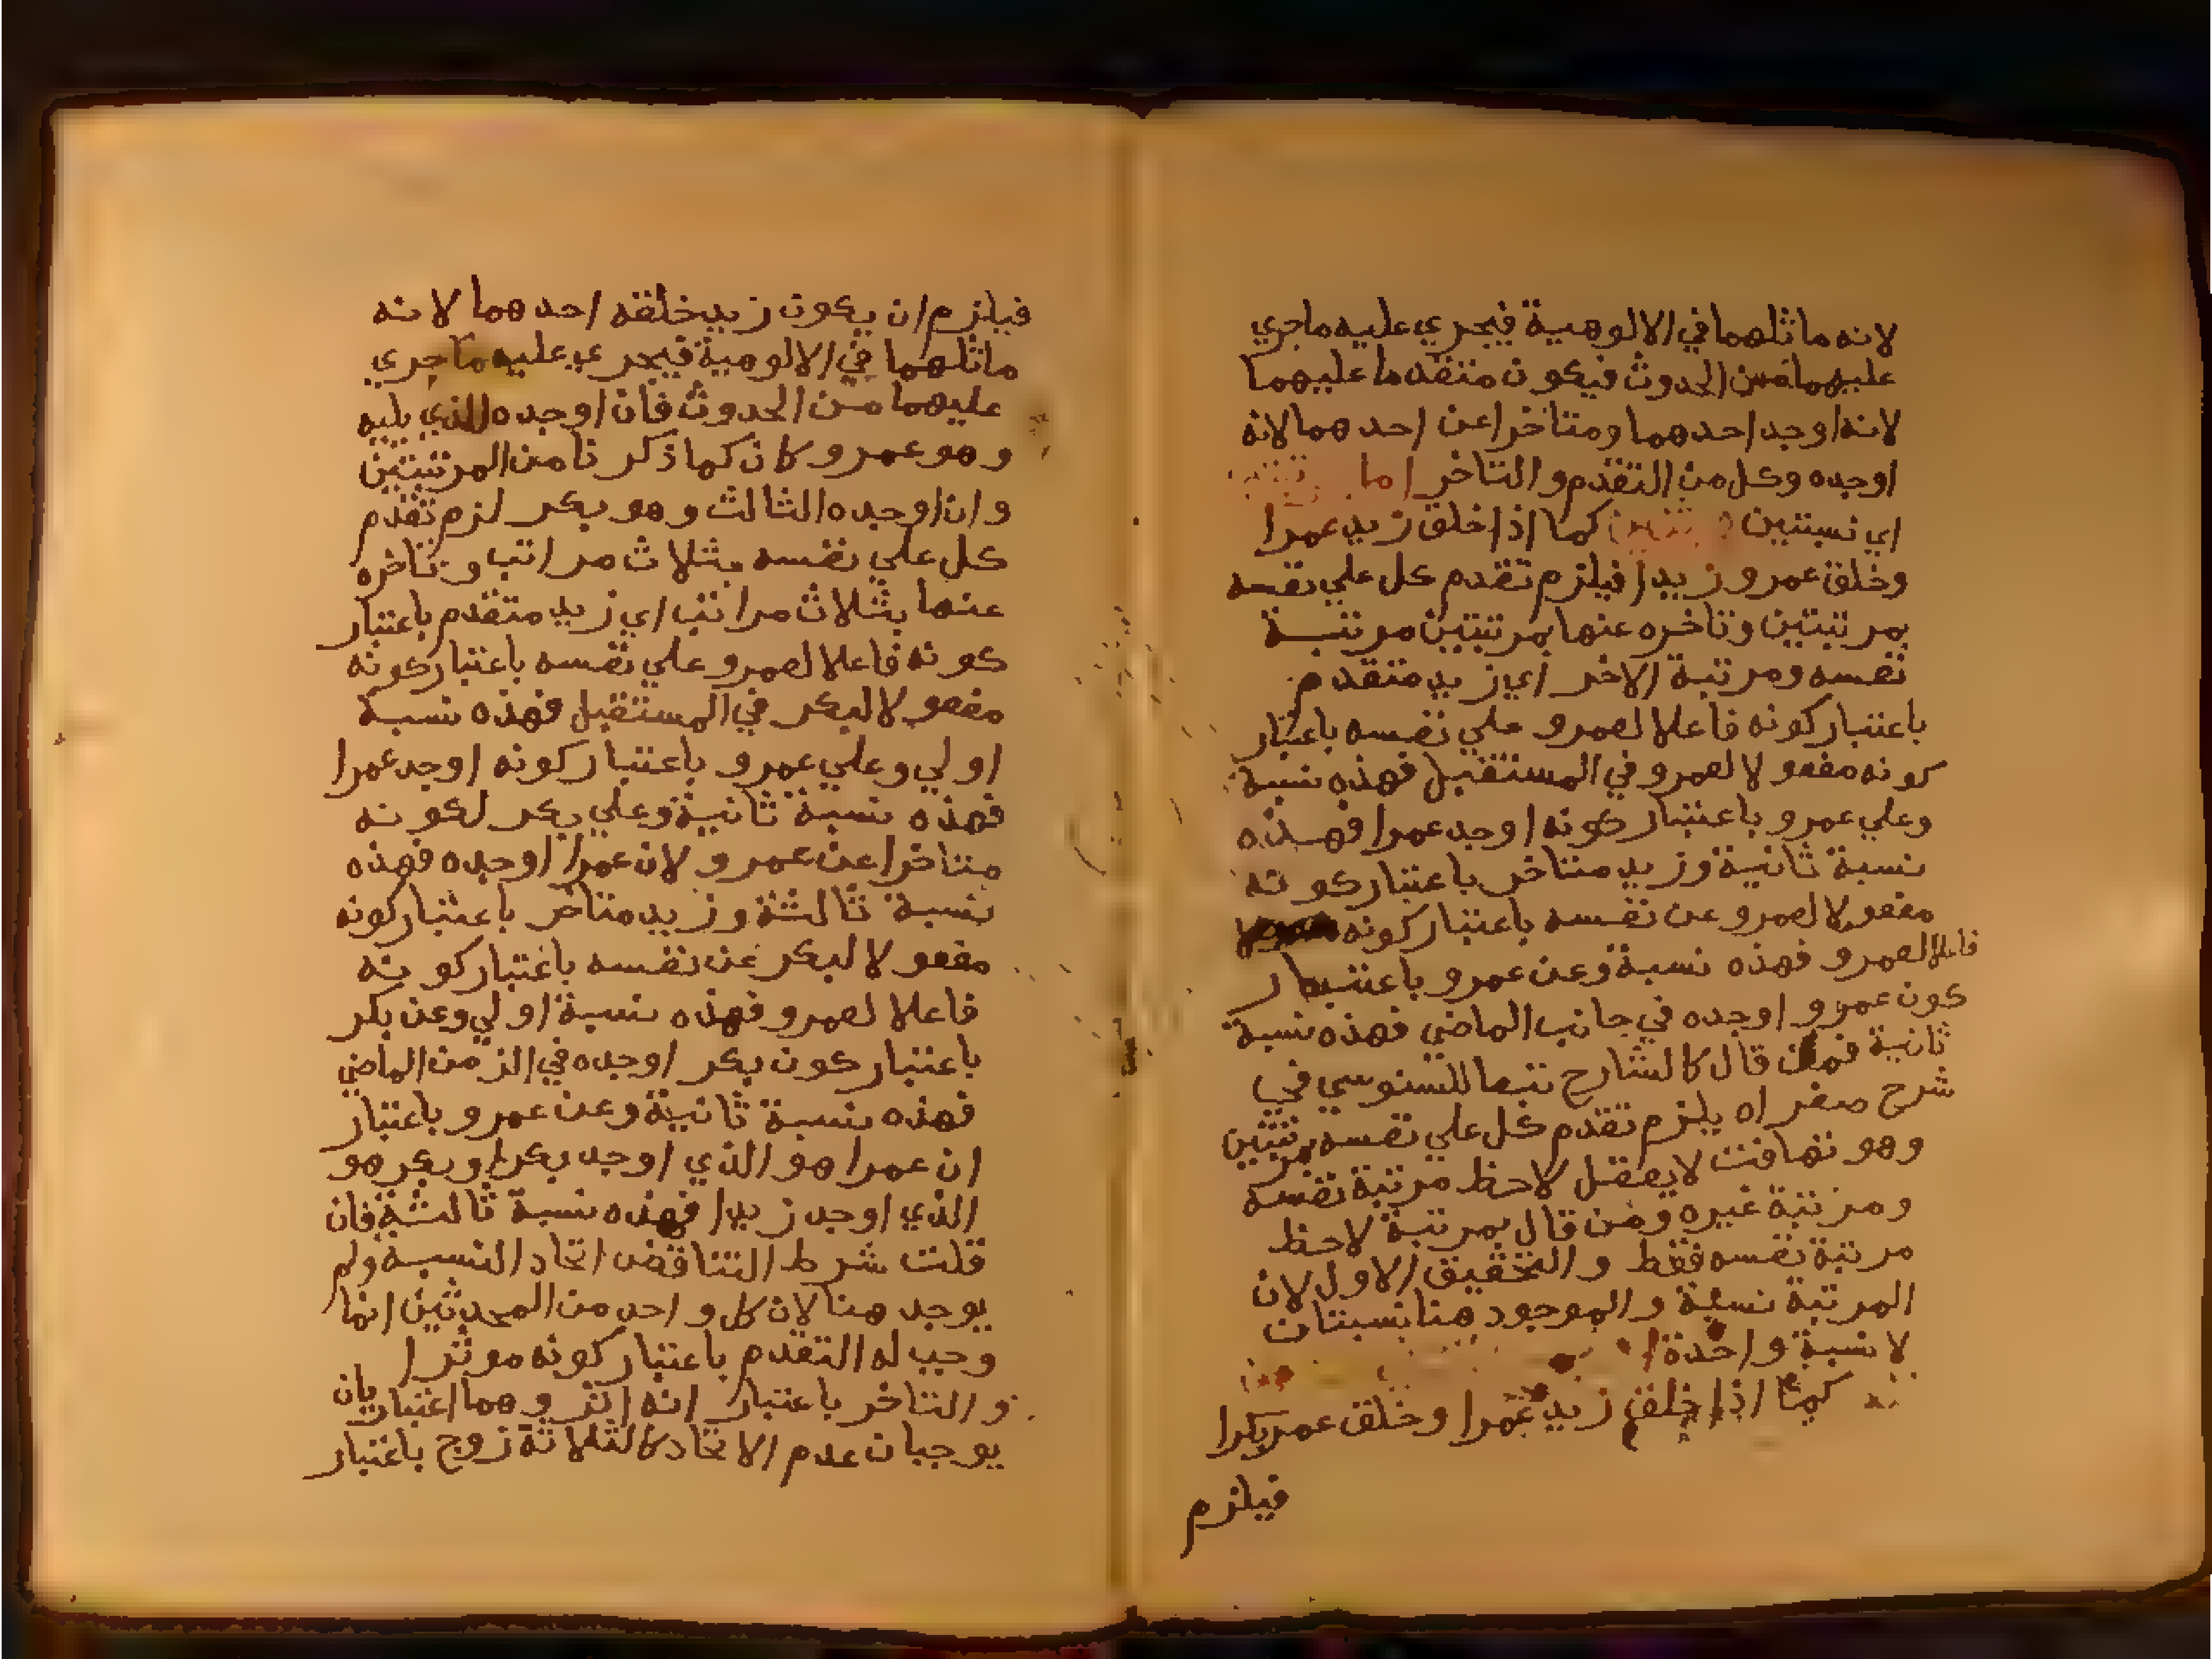 لانه ماثلهما في الالوهية فيجري عليه ماجري
عليهما من الحدوث فيكون متقدما عليهما
لانه اوجد احدهما ومتاخرا عن احدهما لانه
اوجده وكل من التقدم والتاخر اما
اي نسبتين كما اذا خلق زيد عمرا
وخلق عمرو زيدا فيلزم تقدم كل علي نفسه
بمرتبتين وتاخره عنها بمرتبتين مرتبة
نفسه ومرتبة الاخر اي زيد متقدم
باعتبار كونه فاعلا لعمرو علي نفسه باعتبار
كونه مفعولا لعمرو في المستقبل فهذه نسبة
وعلي عمرو باعتبار كونه اوجد عمرا فهذه
نسبة ثانية وزيد متاخر باعتبار كونه
مفعولا لعمرو عن نفسه باعتبار كونه
فاعلا لعمرو فهذه نسبة وعن عمرو باعتبار
كون عمرو اوجده في جانب الماضي فهذه نسبة
ثانية فمن قال كالشارح تبعا للسنوسي في
شرح صغراه يلزم تقدم كل علي نفسه بمرتبتين
وهو تهافت لا يعقل لاحظ مرتبة نفسه
ومرتبة غيره ومن قال بمرتبة لاحظ
مرتبة نفسه فقط والتحقيق الاول لان
المرتبة نسبة والموجود هنا نسبتان
لا نسبة واحدة
كما اذا خلق زيد عمرا وخلق عمرو بكرا
فيلزم
فيلزم ان يكون زيد خلقه احدهما لانه
ماثلهما في الالوهية فيجري عليه ماجري
عليهما من الحدوث فان اوجده الذي يليه
وهو عمرو كان كما ذكرنا من المرتبتين
وان اوجده الثالث وهو بكر لزم تقدم
كل علي نفسه بثلاث مراتب وتاخره
عنها بثلاث مراتب اي زيد متقدم باعتبار
كونه فاعلا لعمرو علي نفسه باعتبار كونه
مفعولا لبكر في المستقبل فهذه نسبة
اولي وعلي عمرو باعتبار كونه اوجد عمرا
فهذه نسبة ثانية وعلي بكر لكونه
متاخرا عن عمرو لان عمرا اوجده فهذه
نسبة ثالثة وزيد متاخر باعتبار كونه
مفعولا لبكر عن نفسه باعتبار كونه
فاعلا لعمرو فهذه نسبة اولي وعن بكر
باعتبار كون بكر اوجده في الزمن الماضي
فهذه نسبة ثانية وعن عمرو باعتبار
ان عمرا هو الذي اوجد بكرا وبكر هو
الذي اوجد زيدا فهذه نسبة ثالثة فان
قلت شرط التناقض اتحاد النسبة ولم
يوجد هنا لان كل واحد من المحدثين انما
وجب له التقدم باعتبار كونه موثرا
والتاخر باعتبار انه اثر وهما اعتباريان
يوجبان عدم الاتحاد كالثلاثة زوج باعتبار